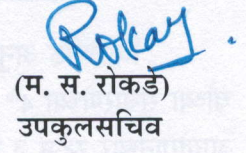 Rokay.
(म. स. रोकडे)
उपकुलसचिव